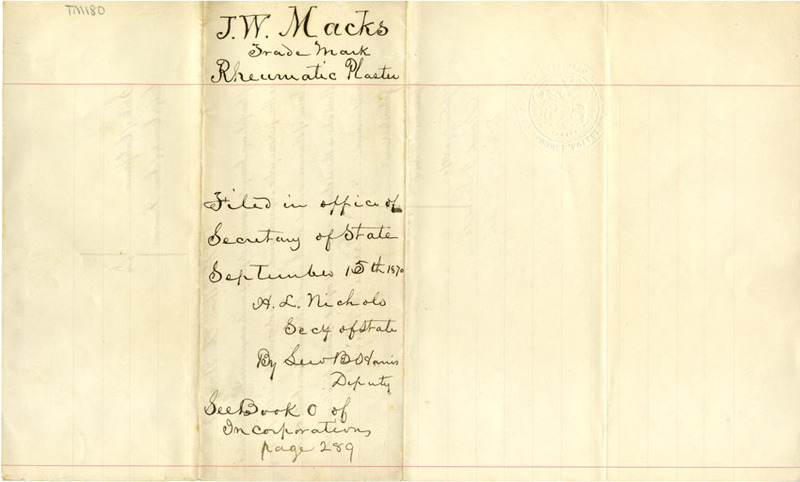 TM180
J.W. Macks
Trade Mark
Rheumatic Plaster
Filed in office of
Secretary of State
September 15th 1870
H. L. Nichols
Secy of State
By Lew B Harris
Deputy
See Book O of
Incorporations
page 289